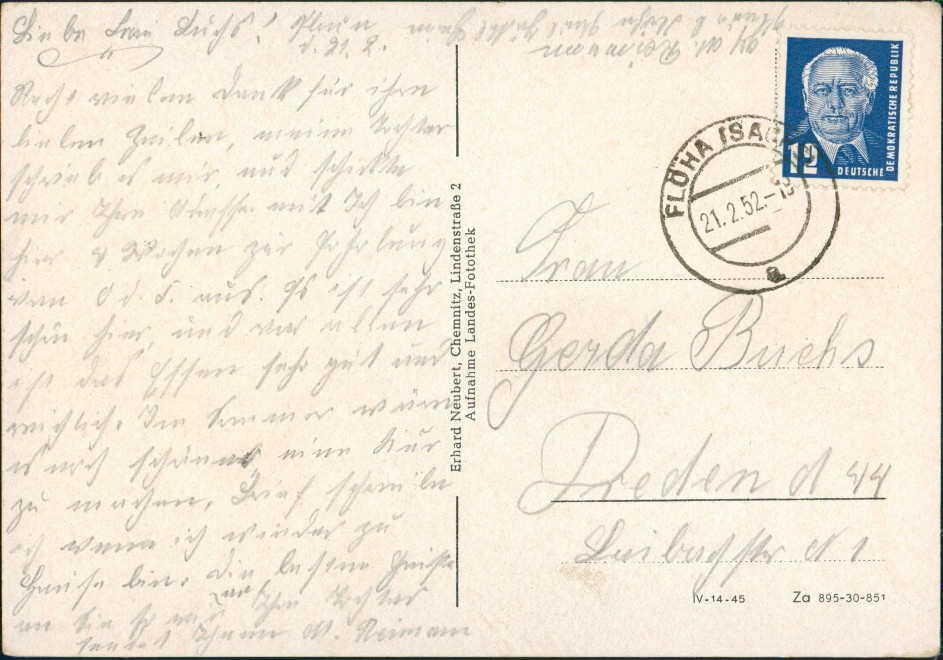 Liebe Frau Buchs! Plaun
d. 21. 2.
Recht vielen Dank für ihre
lieben Zeilen, meine Tochter
schrieb es mir, und schickte
mir Ihre Adresse mit Ich bin
hier 4 Wochen zur Erholung
von O d. F. aus. Es ist sehr
schön hier, und vor allem
ist das Essen sehr gut und
reichlich. Im Sommer wäre
es noch schöner eine Kur
zu machen. Brief schreibe
ich wenn ich wieder zu
Hause bin. Die besten Grüße
an Sie so wie an Ihre Tochter
sendet Ihnen M. Reimann
M. Reimann
Erhard Neubert, Chemnitz, Lindenstraße 2
Aufnahme Landes-Fotothek
DEUTSCHE
DEMOKRATISCHE REPUBLIK
12
FLÖHA (SACHS)
21.2.52.-19
a
Frau
Gerda Buchs
Dreden A 44
Laibachstr N 1
IV-14-45 Za 895-30-851